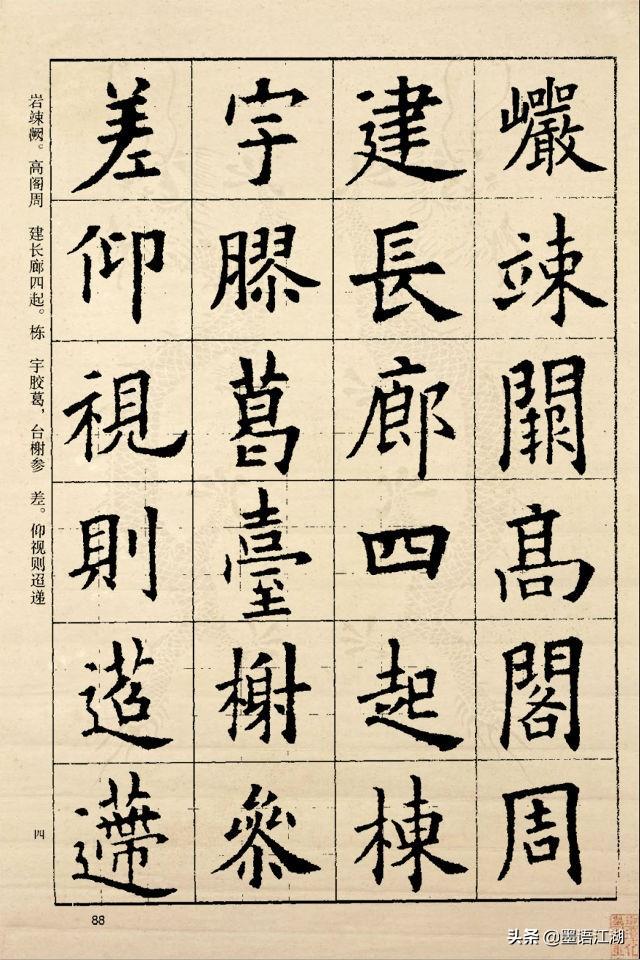 巖竦闕高閣周
建長廊四起棟
宇膠葛臺榭參
差仰視則迢遰
岩竦阙。高阁周 建长廊四起。栋 宇胶葛，台榭参 差。仰视则迢递
四
88
头条 @墨语江湖